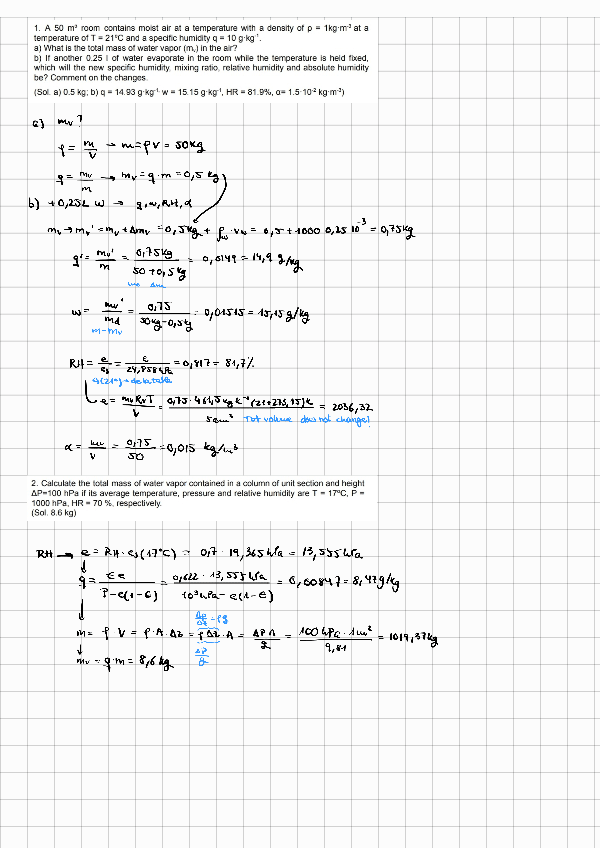 1. A 50 m³ room contains moist air at a temperature with a density of ρ = 1kg·m⁻³ at a
temperature of T = 21ºC and a specific humidity q = 10 g·kg⁻¹.
a) What is the total mass of water vapor (mᵥ) in the air?
b) If another 0.25 l of water evaporate in the room while the temperature is held fixed,
which will the new specific humidity, mixing ratio, relative humidity and absolute humidity
be? Comment on the changes.
(Sol. a) 0.5 kg; b) q = 14.93 g·kg⁻¹, w = 15.15 g·kg⁻¹, HR = 81.9%, α= 1.5·10⁻² kg·m⁻³)
a) mᵥ?
ρ = m/V → m=ρV = 50kg
q = mᵥ/m → mᵥ = q·m = 0,5 kg
b) +0,25L w → q, w, RH, α
mᵥ → mᵥ' = mᵥ + Δmᵥ = 0,5kg + ρw·Vw = 0,5 + 1000 0,25 10⁻³ = 0,75kg
q' = mᵥ'/m = 0,75kg / 50+0,5kg = 0,0149 = 14,9 g/kg
mo Δm
w = mᵥ'/md = 0,75 / 50kg-0,5kg = 0,01515 = 15,15 g/kg
m-mᵥ
RH = e/es = e/24,858hPa = 0,817 = 81,7%
es(21º) → de la tabla
e = mᵥRᵥT/V = 0,75·461,5 kg k⁻¹(21+273,15)k / 50m³ = 2036,32
Tot volume does not change!
α = mᵥ/V = 0,75/50 = 0,015 kg/m³
2. Calculate the total mass of water vapor contained in a column of unit section and height
ΔP=100 hPa if its average temperature, pressure and relative humidity are T = 17ºC, P =
1000 hPa, HR = 70 %, respectively.
(Sol. 8.6 kg)
RH → e = RH·es(17ºC) = 0,7 · 19,365hPa = 13,555hPa
q = Ee / P-e(1-E) = 0,622 · 13,555hPa / 10³hPa - e(1-E) = 0,00847 = 8,47g/kg
Δp/Δz = ρg
m = ρ V = ρ·A·Δz = ρΔz·A = ΔP A/g = 100hPa·1m²/9,81 = 1019,37kg
ΔP/g
mᵥ = q·m = 8,6 kg